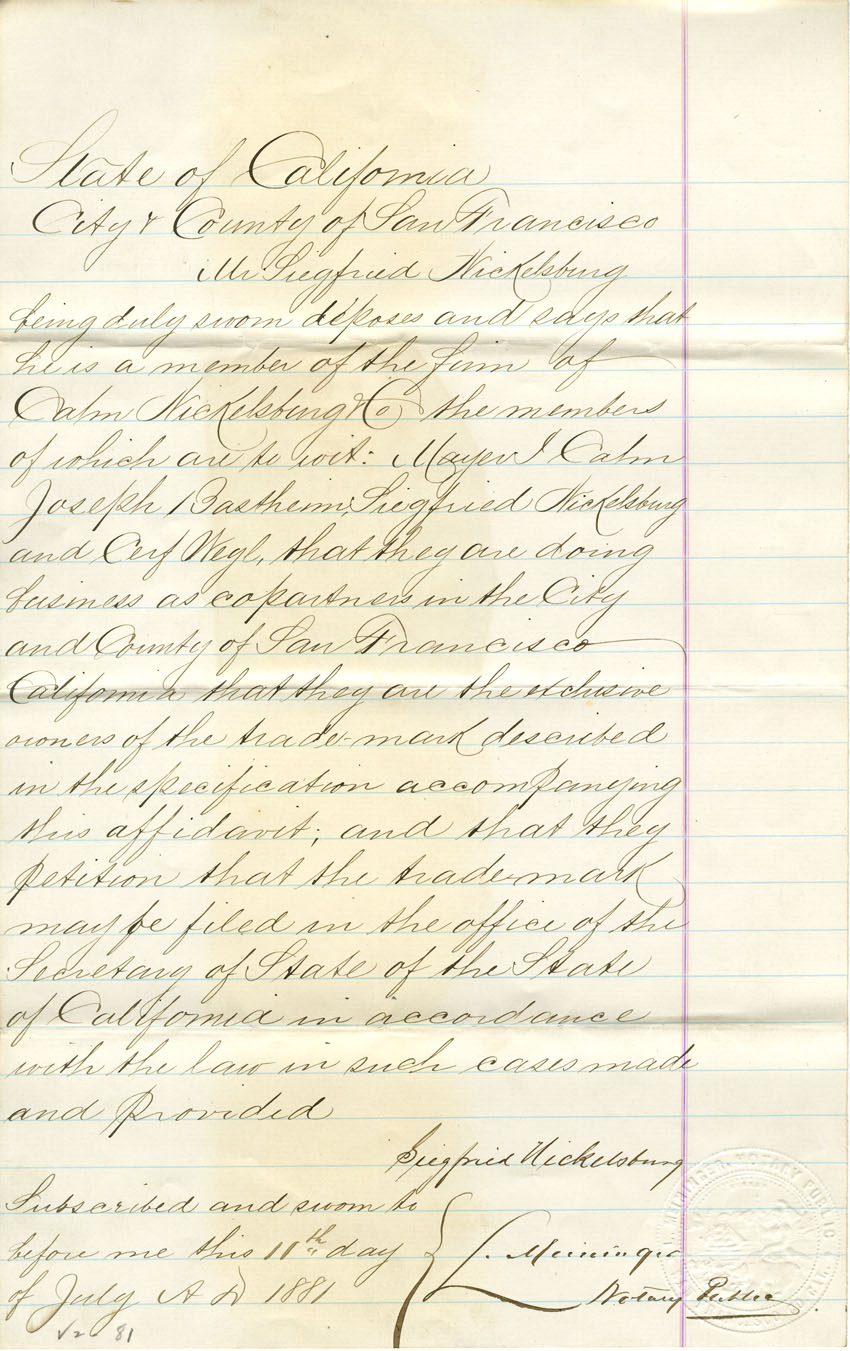 State of California
City & County of San Francisco
Mr. Siegfried Nickelsburg
being duly sworn deposes and says that
he is a member of the firm of
Cahn Nickelsburg & Co the members
of which are to wit: Mayer I Cahn
Joseph Bastheim, Siegfried Nickelsburg
and Cerf Weyl, that they are doing
business as copartners in the City
and County of San Francisco
California that they are the exclusive
owners of the trade-mark described
in the specification accompanying
this affidavit; and that they
petition that the trade-mark
may be filed in the office of the
Secretary of State of the State
of California in accordance
with the law in such cases made
and provided
Siegfried Nickelsburg
Subscribed and sworn to
before me this 11th day
of July A D 1881
L. Meininger
Notary Public
NOTARY PUBLIC
81